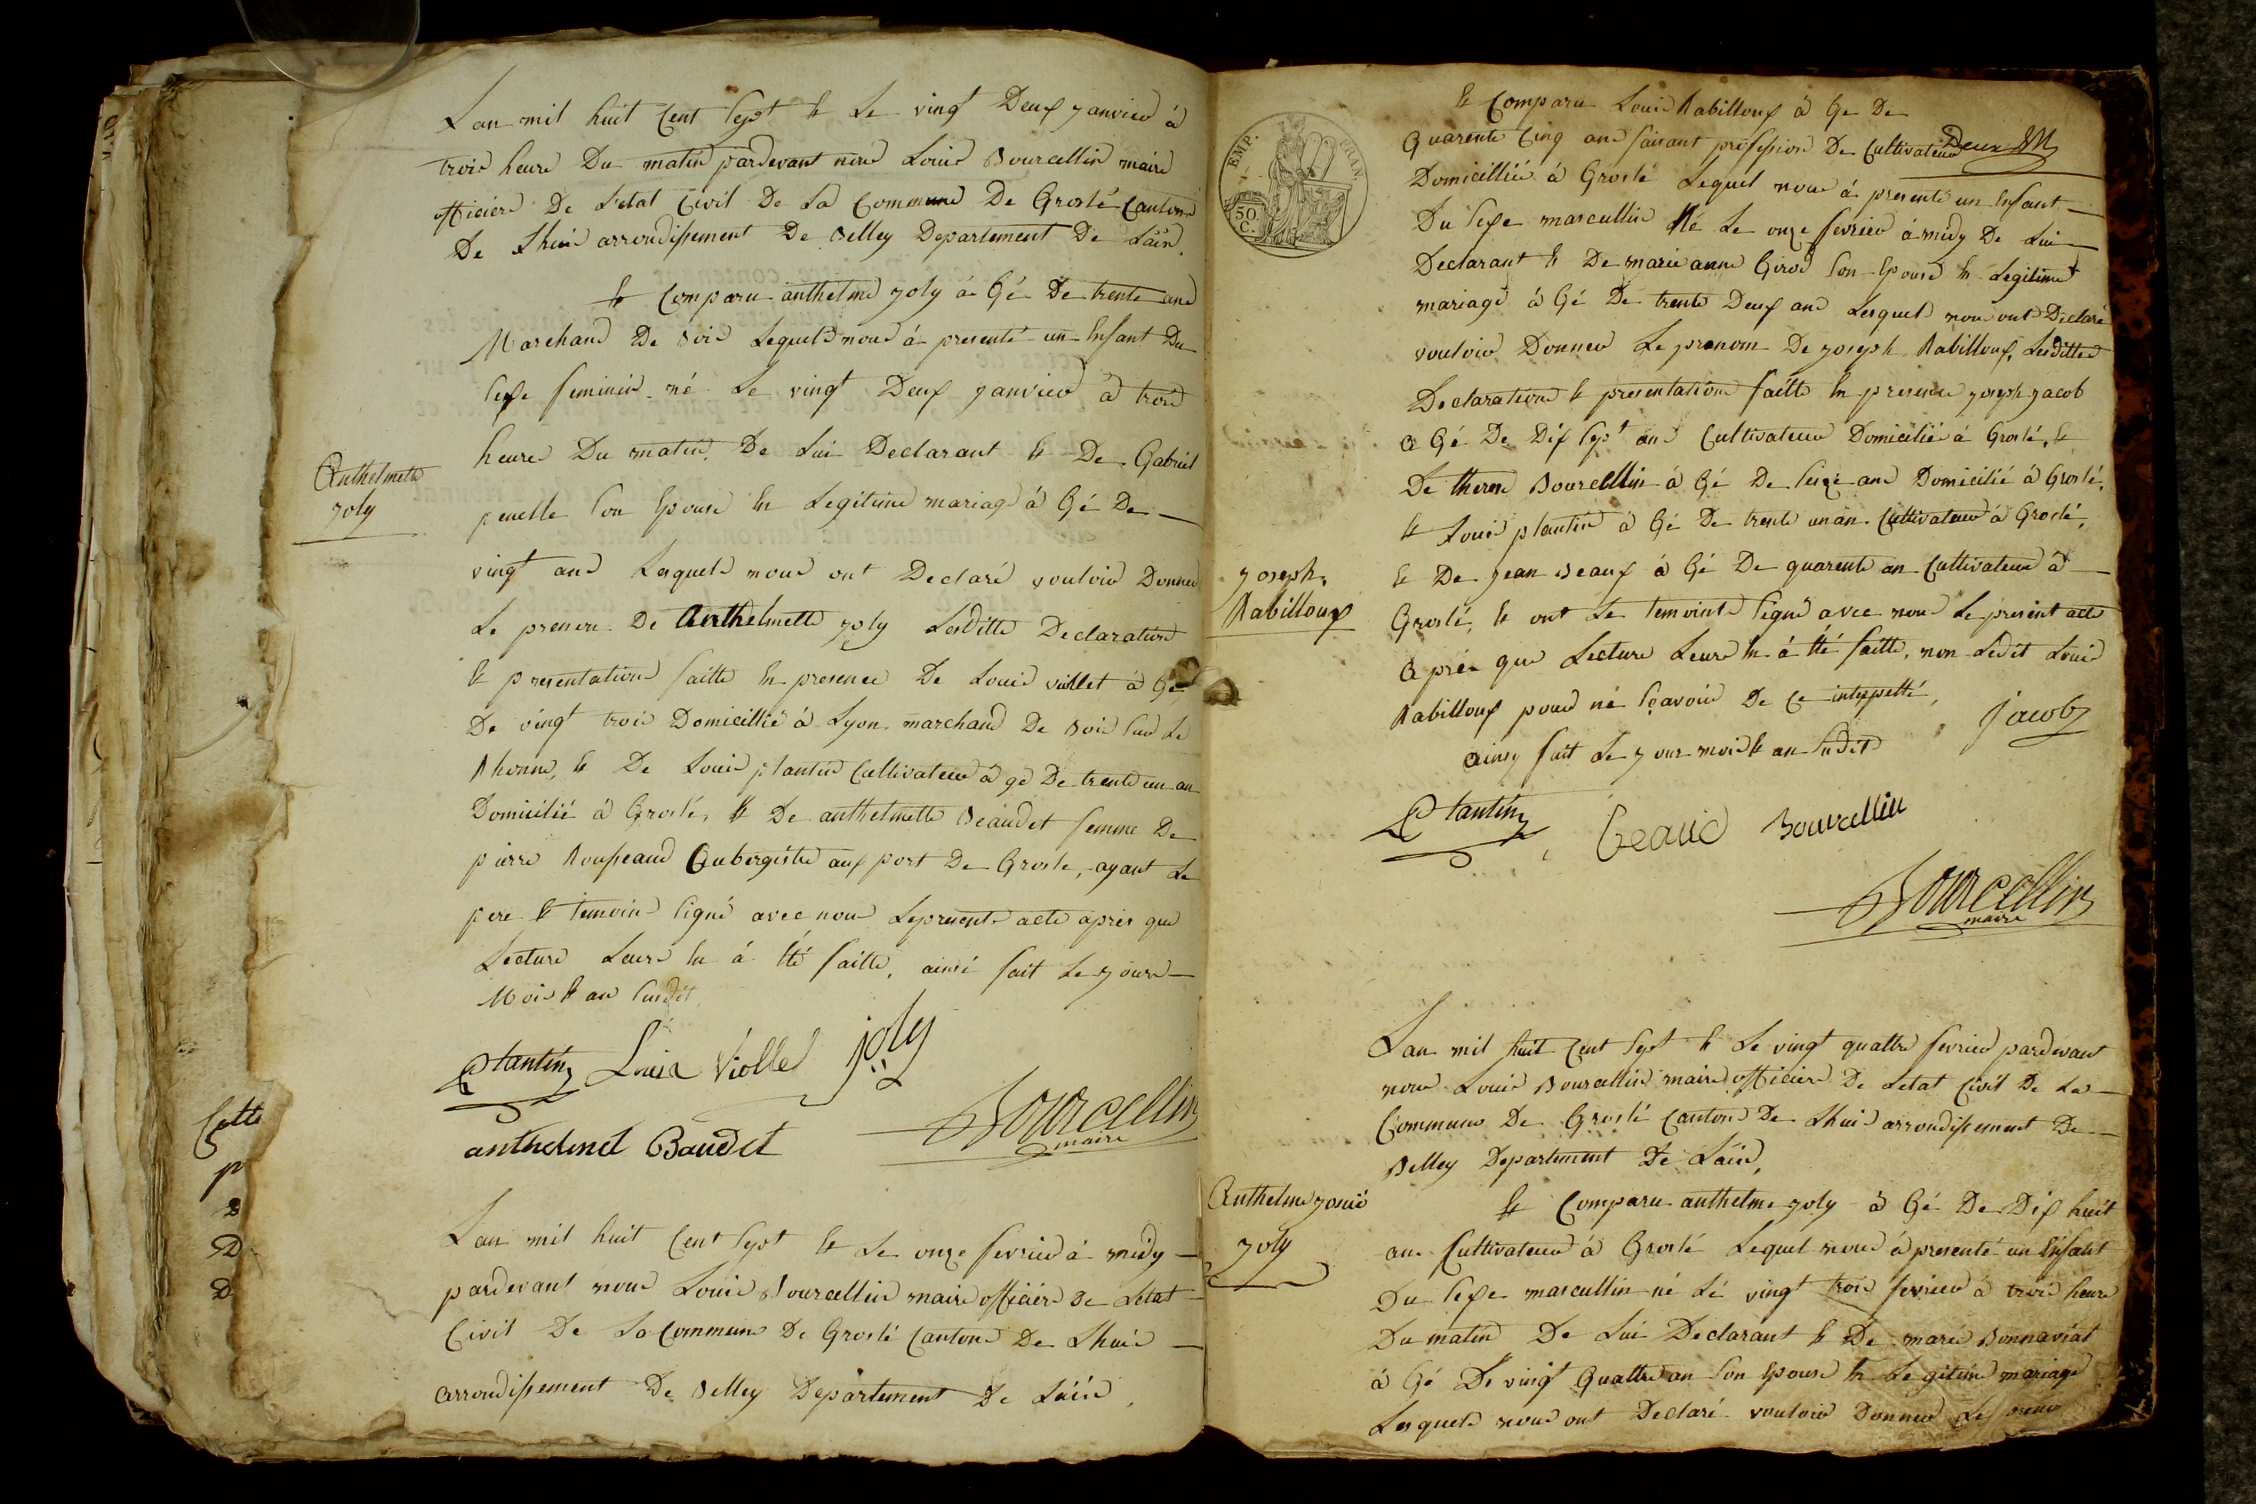 Lan mil huit Cent Sept & Le vingt Deux janvier à
trois heure Du matin pardevant nous Louis Bourcellin maire
officiere De Letat Civil De La Commune De Groslé Canton
De Lhuis arrondissement De Belley Departement De Lain.
& Comparu anthelme joly á Gé De trente ans
Marchand De Bois Lequel nous á presenté un Enfant Du
sexe feminin né Le vingt Deux janvier à trois
heure Du matin. De Lui Declarant & De Gabriel
penelle son Epouse En Legitime mariage á Gé De
vingt ans Lesquels nous ont Declaré vouloir Donner
Anthelmette
joly
Le prenom De Anthelmette joly Lesditte Declaration
& presentation faitte En presence De Louis viollet à Gé
De vingt trois Domicillié á Lyon marchand De Bois sur Le
Rhonne, & De Louis plantin Cultivateur à gé De trente un an
Domicilié á Groslé, & De anthelmette Beaudet femme De
pierre Rousseaud Aubergiste aux port De Grosle, ayant Le
pere & temoins signé avec nous Lepresente acte après que
Lecture Leure En á Eté faitte, ainsi fait Le joure
Mois & an susdit
Plantin Louis Viollet joly
Bourcellin
maire
anthelmet Baudet
Cette
p
D
D
Lan mil huit Cent Sept & Le onze fevrier á midy
pardevant nous Louis Bourcellin maire officiere De Letat
Civil De La Commune De Groslé Canton De Lhuis
arrondissement De Belley Departement De Lain,
EMP. FRAN.
50
C.
Deux
& Comparu Louis Rabilloux á Gé De
Quarente Cinq ans faisant profession De Cultivateur
Domicillié á Groslé Lequel nous á presenté un Enfant
Du sexe mascullin Né Le onze fevrier á midy De Lui
Declarant & De marie anne Girod son Epouse En Legitime
mariage á Gé De trente Deux ans Lesquels nous ont Declaré
vouloir Donner Le prenom De joseph Rabilloux, Lesdittes
Declaration & presentation faitte En presence joseph jacob
a Gé De Dix Sept ans Cultivateur Domicilié á Groslé, &
De Bourcellin á Gé De seize ans Domicilié á Groslé,
& Louis plantin á Gé De trente un an Cultivateur á Groslé,
joseph
Rabilloux
& De jean Beaux á Gé De quarente an Cultivateur á
Groslé, & ont Le temoints signé avec nous Le present acte
aprés que Lecture Leure En á Eté faitte, non Ledit Louis
Rabilloux pour ne sçavoir De Ce interpellé,
ainsy fait Le jour mois & an susdit
jacob
Plantin Beaud Bourcellin
Bourcellin
maire
Lan mil huit Cent Sept & Le vingt quattre fevrier pardevant
nous Louis Bourcellin maire officiere De Letat Civil De La
Commune De Groslé Canton De Lhuis arrondissement De
Belley Departement De Lain,
Anthelme
joly
& Comparu anthelme joly á Gé De Dix huit
ans Cultivateur á Groslé Lequel nous á presenté un Enfant
Du sexe mascullin né Lé vingt trois fevrier á trois heure
Du matin De Lui Declarant & De marie Bonnaviat
á Gé De vingt Quattre an son Epouse En Legitime mariage
Lesquels nous ont Declaré vouloir Donner Le